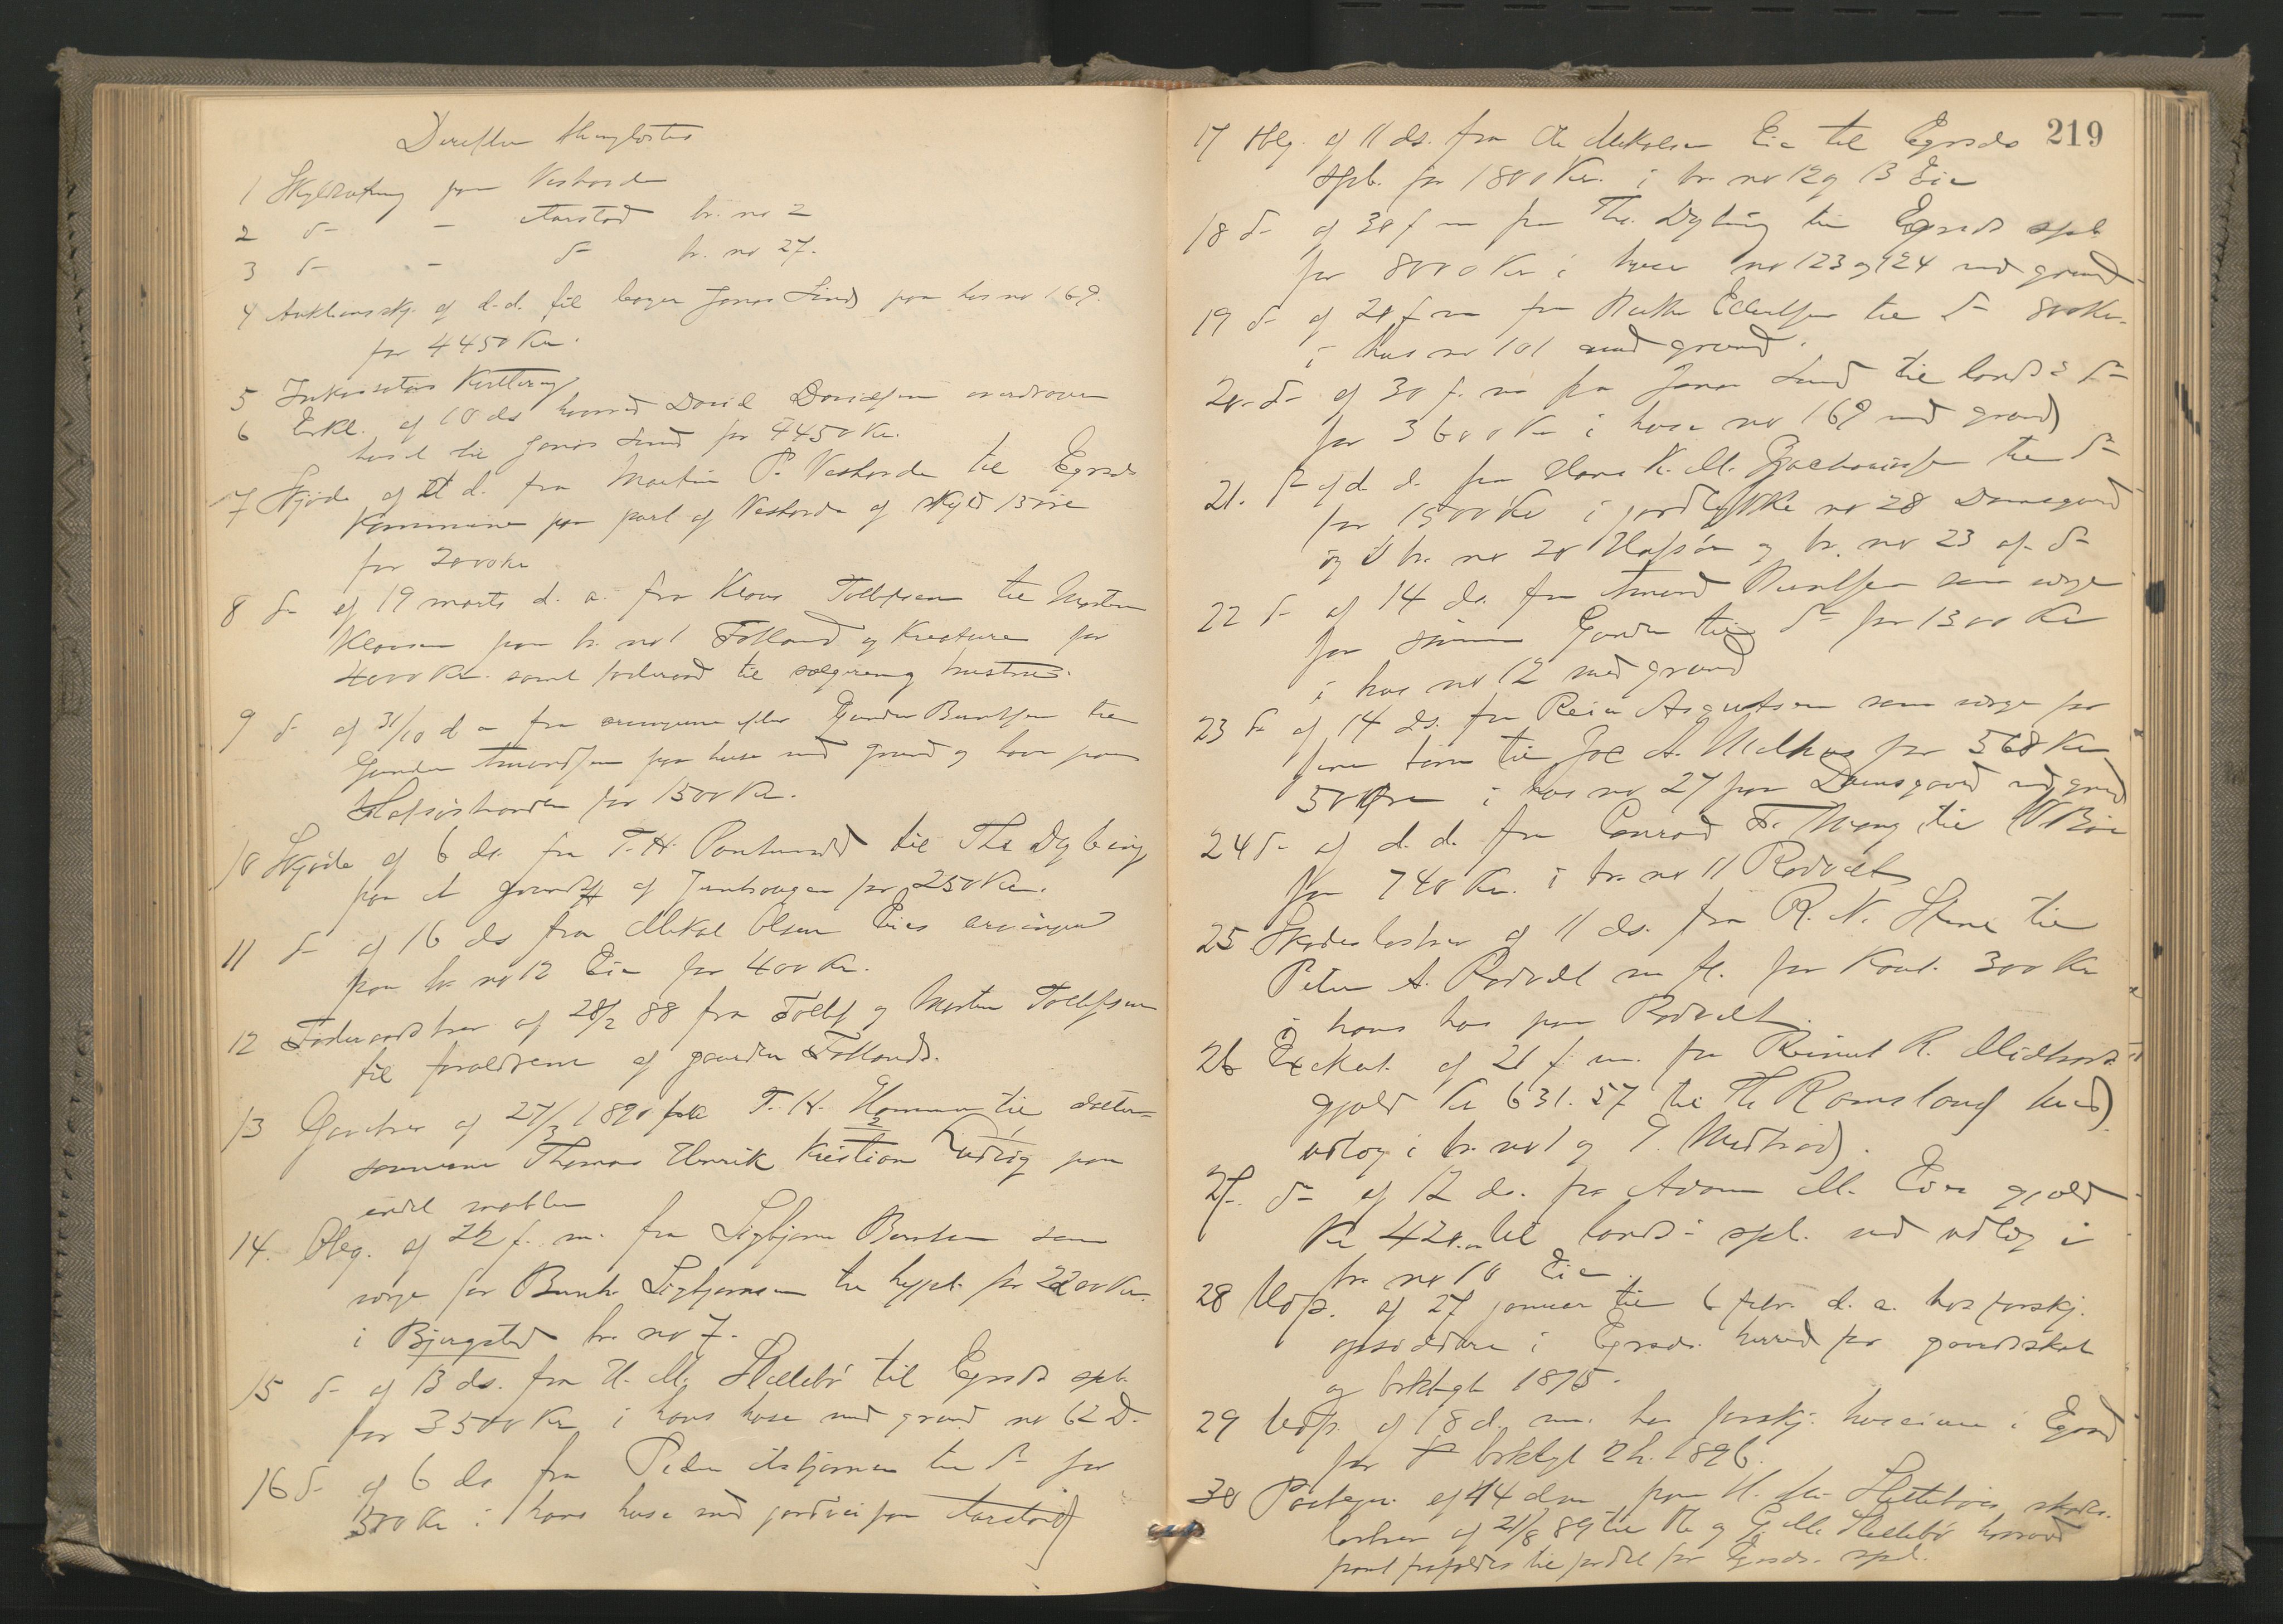 Derefter thinglæstes
1 Skyldeling paa Neshorde
2 do - Aarstad br. no 2
3 do - do br. no 27.
4 Auktionsskj. af d.d. til Jonas Lund paa hus no 169.
for 4450 Kr.
5 Kvittering
6 Erkl. af 10 ds hvorved David Davidsen overdrager
huset til Jonas Lund for 4450 Kr.
7 Skjøde af d. fra Martin P. Neshorde til Egersds
Kommune paa part af Neshorde af skyld 13 øre
for 2000 Kr
8 do af 19 marts d. a. fra Klaus Tollefsen til Morten
Klausen paa br. no 1 Folland og Kreature for
4000 Kr. samt føderaad til sælgeren og hustru.
9 do af 31/10 d a fra arvingerne efter Gunder Berntsen til
Gunder Amundsen paa huse med grund og have paa
Hafsøstranden for 1500 Kr.
10 Skjøde af 6 ds. fra T. H. Puntervold til Ths Dybing
paa et grundst af for 250 Kr.
11 do af 16 ds fra Mikal Olsen Eies arvinger
paa br no 12 Eie for 400 Kr.
12 Føderaadsbrev af 28/2 88 fra Tollef og Morten Tollefsen
til forældrene af gaarden Folland.
13 Gavebrev af 27/3 1890 fra T. H. til datter-
sønnerne Thomas Henrik Kristian Ludvig paa
endel møbler
14. Oblg. af 22 f. m. fra Sigbjørn Berntsen som
værge for Bernt Sigbjørnsen til hypb. for 2200 Kr.
i Bjergsted br. no 7.
15 do af 13 ds. fra H. M. Skettebø til Egersds spb.
for 3500 Kr i hans huse med grund no 62 D.
16 do af 6 ds fra Peder Asbjørnsen til do for
500 Kr i hans huse med jordvei paa Aarstad
219
17 Oblg. af 11 ds. fra Ole Mikalsen Eie til Egersds
spb. for 1800 Kr. i br. no 12 og 13 Eie
18 do af 30 f m fra Ths. Dybing til Egersds spb
for 8000 Kr i huse no 123 og 124 med grund
19 do af 20 f m fra til do 800 Kr.
i hus no 101 med grund.
20. do af 30 f. m fra Jonas Lund til lands do
for 3600 Kr i huse no 169 med grund
21. do af d. d. fra Hans K. M. Zachariassen til do
for 1500 Kr i jordlykke no 28 Damsgaard
og i br. no 20 Hafsøen og br. no 23 af do
22 do af 14 ds. fra Amund Berntsen som værge
for sønnen Gunder til do for 1300 Kr
i hus no 12 med grund
23 do af 14 ds. fra Reier Asgautsen som værge for
sine børn til Joe A. Melhus for 568 Kr
50 Øre i hus no 27 paa Damsgaard med grund
24 do af d. d. fra Conrad F. Mong til W Bøe
for 740 Kr. i br. no 11 Rodvelt
25 Skadesløsbrev af 11 ds. fra R. N. Stene til
Peter A. Rodvelt m fl. for Kaut. 300 Kr
i hans hus paa Rodvelt.
26 Exekut. af 21 f. m. fra Reinert R. Midbrød
gjæld Kr 631.57 til Th Ramsland med
udlæg i br. no 1 og 9 Midbrød.
27. do af 12 ds. fra Adam M. Eie gjæld
Kr 420.- til lands- spb. med udlæg i
br. no 10 Eie.
28 Udp. af 27 januar til 6 febr. d. a. hos forskj.
opsiddere i Egersds. herred for grundskat
og brktgt 1895.
29 Udp. af 18 d. m. hos forskj. huseiere i Egersd
for brktgt 2 h. 1896.
30 Paategn. af 14 dm paa H. M. Skettebøes skades-
løsbrev af 21/8 89 til Th og G. M. Skettebø hvorved
pant frafaldes til fordel for Egersds. spb.